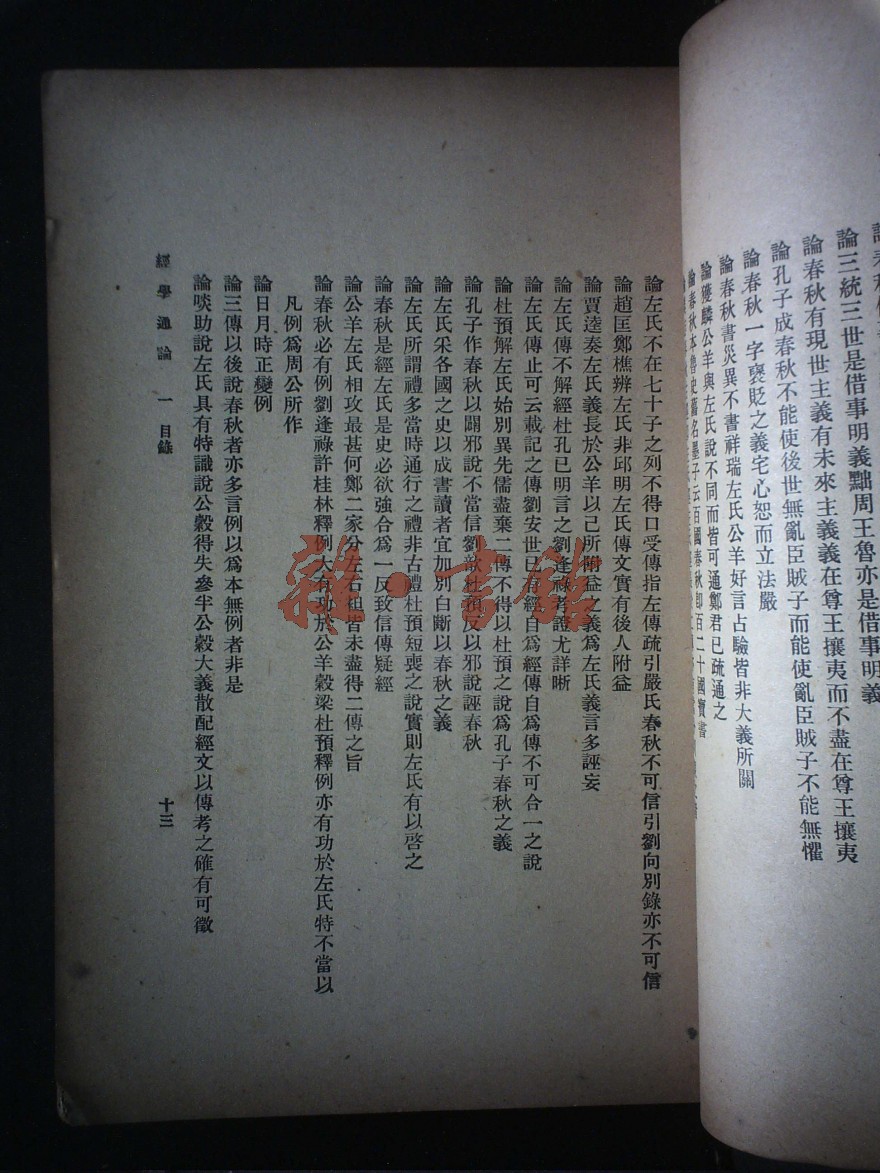 論三統三世是借事明義黜周王魯亦是借事明義
論春秋有現世主義有未來主義義在尊王攘夷而不盡在尊王攘夷
論孔子成春秋不能使後世無亂臣賊子而能使亂臣賊子不能無懼
論春秋一字褒貶之義宅心恕而立法嚴
論春秋書災異不書祥瑞左氏公羊好言占驗皆非大義所關
論獲麟公羊與左氏說不同而皆可通鄭君已疏通之
論春秋本魯史舊名墨子云百國春秋卽百二十國寶書
論左氏不在七十子之列不得口受傳指左傳疏引嚴氏春秋不可信引劉向別錄亦不可信
論趙匡鄭樵辨左氏非邱明左氏傳文實有後人附益
論賈逵奏左氏義長於公羊以己所附益之義爲左氏義言多誣妄
論左氏傳不解經杜孔已明言之劉逢祿考證尤詳晰
論左氏傳止可云載記之傳劉安世已有經自爲經傳自爲傳不可合一之說
論杜預解左氏始別異先儒盡棄二傳不得以杜預之說爲孔子春秋之義
論孔子作春秋以闢邪說不當信劉歆杜預反以邪說誣春秋
論左氏采各國之史以成書讀者宜加別白斷以春秋之義
論左氏所謂禮多當時通行之禮非古禮杜預短喪之說實則左氏有以啓之
論春秋是經左氏是史必欲強合爲一反致信傳疑經
論公羊左氏相攻最甚何鄭二家分左右袒皆未盡得二傳之旨
論春秋必有例劉逢祿許桂林釋例大有功於公羊穀梁杜預釋例亦有功於左氏特不當以
凡例爲周公所作
論日月時正變例
論三傳以後說春秋者亦多言例以爲本無例者非是
論啖助說左氏具有特識說公穀得失參半公穀大義散配經文以傳考之確有可徵
經學通論 一 目錄 十三
雜·書館